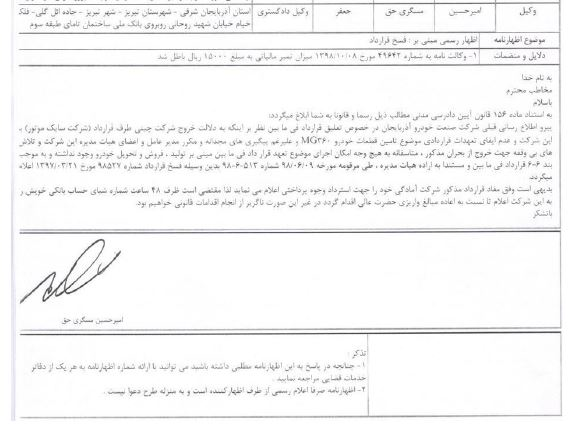 وکیل
امیرحسین
مسگری حق
جعفر
وکیل دادگستری
استان آذربایجان شرقی - شهرستان تبریز - شهر تبریز - جاده ائل گلی - فلکه
خیام خیابان شهید روحانی روبروی بانک ملی ساختمان تامای طبقه سوم
موضوع اظهارنامه
اظهار رسمی مبنی بر : فسخ قرارداد
دلایل و منضمات
۱- وکالت نامه به شماره ۴۹۶۴۲ مورخ ۱۳۹۸/۱۰/۰۸ میزان تمبر مالیاتی به مبلغ ۱۵۰۰۰ ریال باطل شد
به نام خدا
مخاطب محترم
باسلام
به استناد ماده ۱۵۶ قانون آیین دادرسی مدنی مطالب ذیل رسما و قانونا به شما ابلاغ میگردد:
پیرو اطلاع رسانی قبلی شرکت صنعت خودرو آذربایجان در خصوص تعلیق قرارداد فی ما بین نظر بر اینکه به دلالت خروج شرکت چینی طرف قرارداد (شرکت سایک موتور) با
این شرکت و عدم ایفای تعهدات قراردادی موضوع تامین قطعات خودرو MG360 و علیرغم پیگیری های مجدانه و مکرر مدیر عامل و اعضای هیات مدیره این شرکت و تلاش
های بی وقفه جهت خروج از بحران مذکور ، متاسفانه به هیچ وجه امکان اجرای موضوع تعهد قرار داد فی ما بین مبنی بر تولید ، فروش و تحویل خودرو وجود نداشته و به موجب
بند ۶-۶ قرارداد فی ما بین و مستندا به اراده هیات مدیره ، طی مرقومه مورخه ۹۸/۰۶/۰۹ شماره ۹۸-۶۰۵۱۳ بدین وسیله فسخ قرارداد شماره ۹۸۵۲۷ مورخ ۱۳۹۷/۰۳/۲۱ اعلام
میگردد
بدیهی است وفق مفاد قرارداد مذکور شرکت آمادگی خود را جهت استرداد وجوه پرداختی اعلام می نماید لذا مقتضی است ظرف ۴۸ ساعت شماره شبای حساب بانکی خویش را
به این شرکت اعلام تا نسبت به اعاده مبالغ واریزی حضرت عالی اقدام گردد در غیر این صورت ناگزیر از انجام اقدامات قانونی خواهیم بود.
باتشکر
امیرحسین مسگری حق
تذکر :
۱- چنانچه در پاسخ به این اظهارنامه مطلبی داشته باشید می توانید با ارائه شماره اظهارنامه به هر یک از دفاتر
خدمات قضایی مراجعه نمایید .
۲- اظهارنامه صرفا اعلام رسمی از طرف اظهارکننده است و به منزله طرح دعوا نیست .